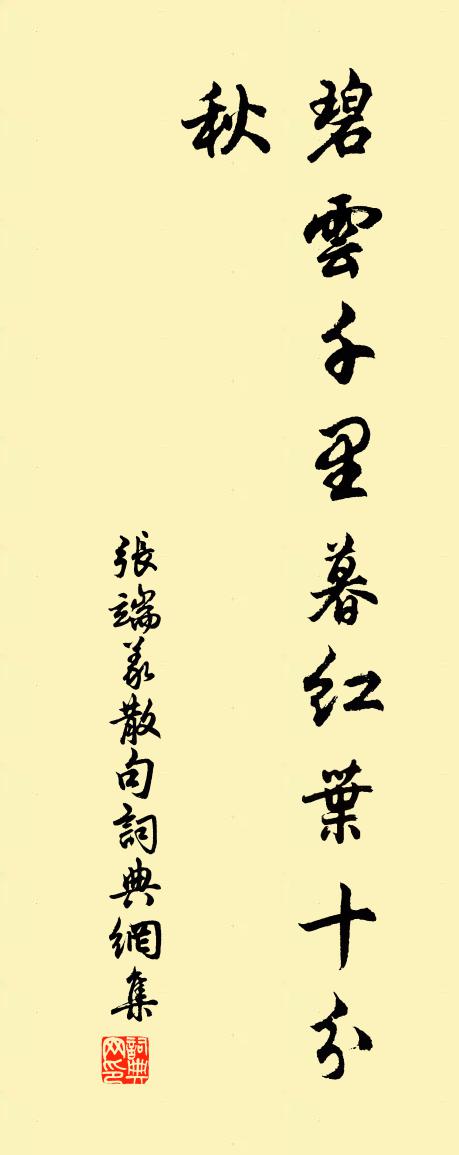 碧雲千里暮紅葉十分
秋
張端義散句詞典網集
詞典
网印